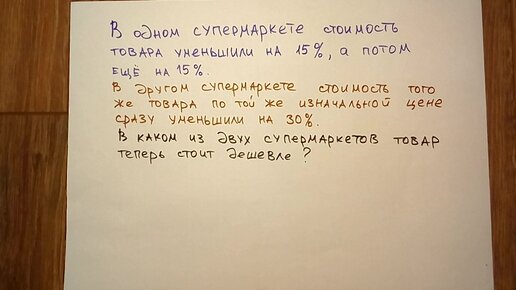 В одном супермаркете стоимость
товара уменьшили на 15%, а потом
ещё на 15%.
В другом супермаркете стоимость того
же товара по той же изначальной цене
сразу уменьшили на 30%.
В каком из двух супермаркетов товар
теперь стоит дешевле?